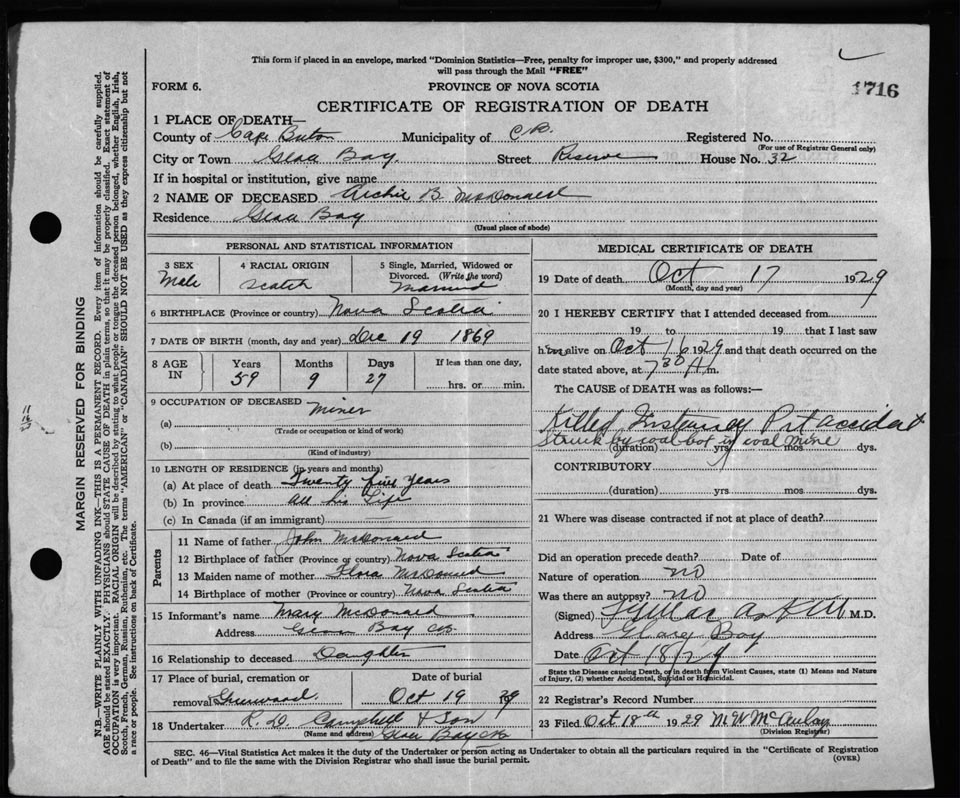 This form if placed in an envelope, marked "Dominion Statistics—Free, penalty for improper use, $300," and properly addressed
will pass through the Mail "FREE"
FORM 6.
PROVINCE OF NOVA SCOTIA
1716
CERTIFICATE OF REGISTRATION OF DEATH
1 PLACE OF DEATH—
County of Cape Breton Municipality of C.B. Registered No.
(For use of Registrar General only)
City or Town Glace Bay. Street Reserve House No. 32
If in hospital or institution, give name
2 NAME OF DECEASED Archie B. McDonald
Residence Glace Bay
(Usual place of abode)
PERSONAL AND STATISTICAL INFORMATION
3 SEX
Male
4 RACIAL ORIGIN
Scotch
5 Single, Married, Widowed or
Divorced. (Write the word)
Married
6 BIRTHPLACE (Province or country) Nova Scotia
7 DATE OF BIRTH (month, day and year) Dec 19 1869
8 AGE IN
Years Months Days If less than one day,
59 9 27 hrs. or min.
9 OCCUPATION OF DECEASED
Miner
(a)
(Trade or occupation or kind of work)
(b)
(Kind of industry)
10 LENGTH OF RESIDENCE (in years and months)
(a) At place of death Twenty five years
(b) In province all his Life
(c) In Canada (if an immigrant)
Parents
11 Name of father John McDonald
12 Birthplace of father (Province or country) Nova Scotia
13 Maiden name of mother Flora McDonald
14 Birthplace of mother (Province or country) Nova Scotia
15 Informant's name Mary McDonald
Address Glace Bay CB
16 Relationship to deceased Daughter
17 Place of burial, cremation or Date of burial
removal Greenwood. Oct 19 29
18 Undertaker R. D. Campbell & Son
(Name and address) Glace Bay CB
MEDICAL CERTIFICATE OF DEATH
19 Date of death Oct 17 1929
(Month, day and year)
20 I HEREBY CERTIFY that I attended deceased from
19 to 19 that I last saw
him alive on Oct 16 1929 and that death occurred on the
date stated above, at 7 30 A m.
The CAUSE of DEATH was as follows:—
Killed Instantly Pit accident
Struck by coal box in coal mine
(duration) yrs mos dys.
CONTRIBUTORY
(duration) yrs. mos. dys.
21 Where was disease contracted if not at place of death?
Did an operation precede death? Date of
Nature of operation no
Was there an autopsy? no
(Signed) M.D.
Address Glace Bay
Date Oct 18/29
State the Disease causing Death, or in death from Violent Causes, state (1) Means and Nature
of Injury, (2) whether Accidental, Suicidal or Homicidal.
22 Registrar's Record Number
23 Filed Oct 18th 1929 M.W McAulay
(Division Registrar)
SEC. 46—Vital Statistics Act makes it the duty of the Undertaker or person acting as Undertaker to obtain all the particulars required in the "Certificate of Registration
of Death" and to file the same with the Division Registrar who shall issue the burial permit.
(OVER)
MARGIN RESERVED FOR BINDING
N.B.—WRITE PLAINLY WITH UNFADING INK—THIS IS A PERMANENT RECORD. Every item of information should be carefully supplied.
AGE should be stated EXACTLY. PHYSICIANS should STATE CAUSE OF DEATH in plain terms, so that it may be properly classified. Exact statement of
OCCUPATION is very important. RACIAL ORIGIN will be described by stating to what people or tongue the deceased person belonged, whether English, Irish,
Scotch, French, German, Russian, Ruthenian, etc. The terms "AMERICAN" or "CANADIAN" SHOULD NOT BE USED as they express citizenship but not
a race or people. See instructions on back of Certificate.